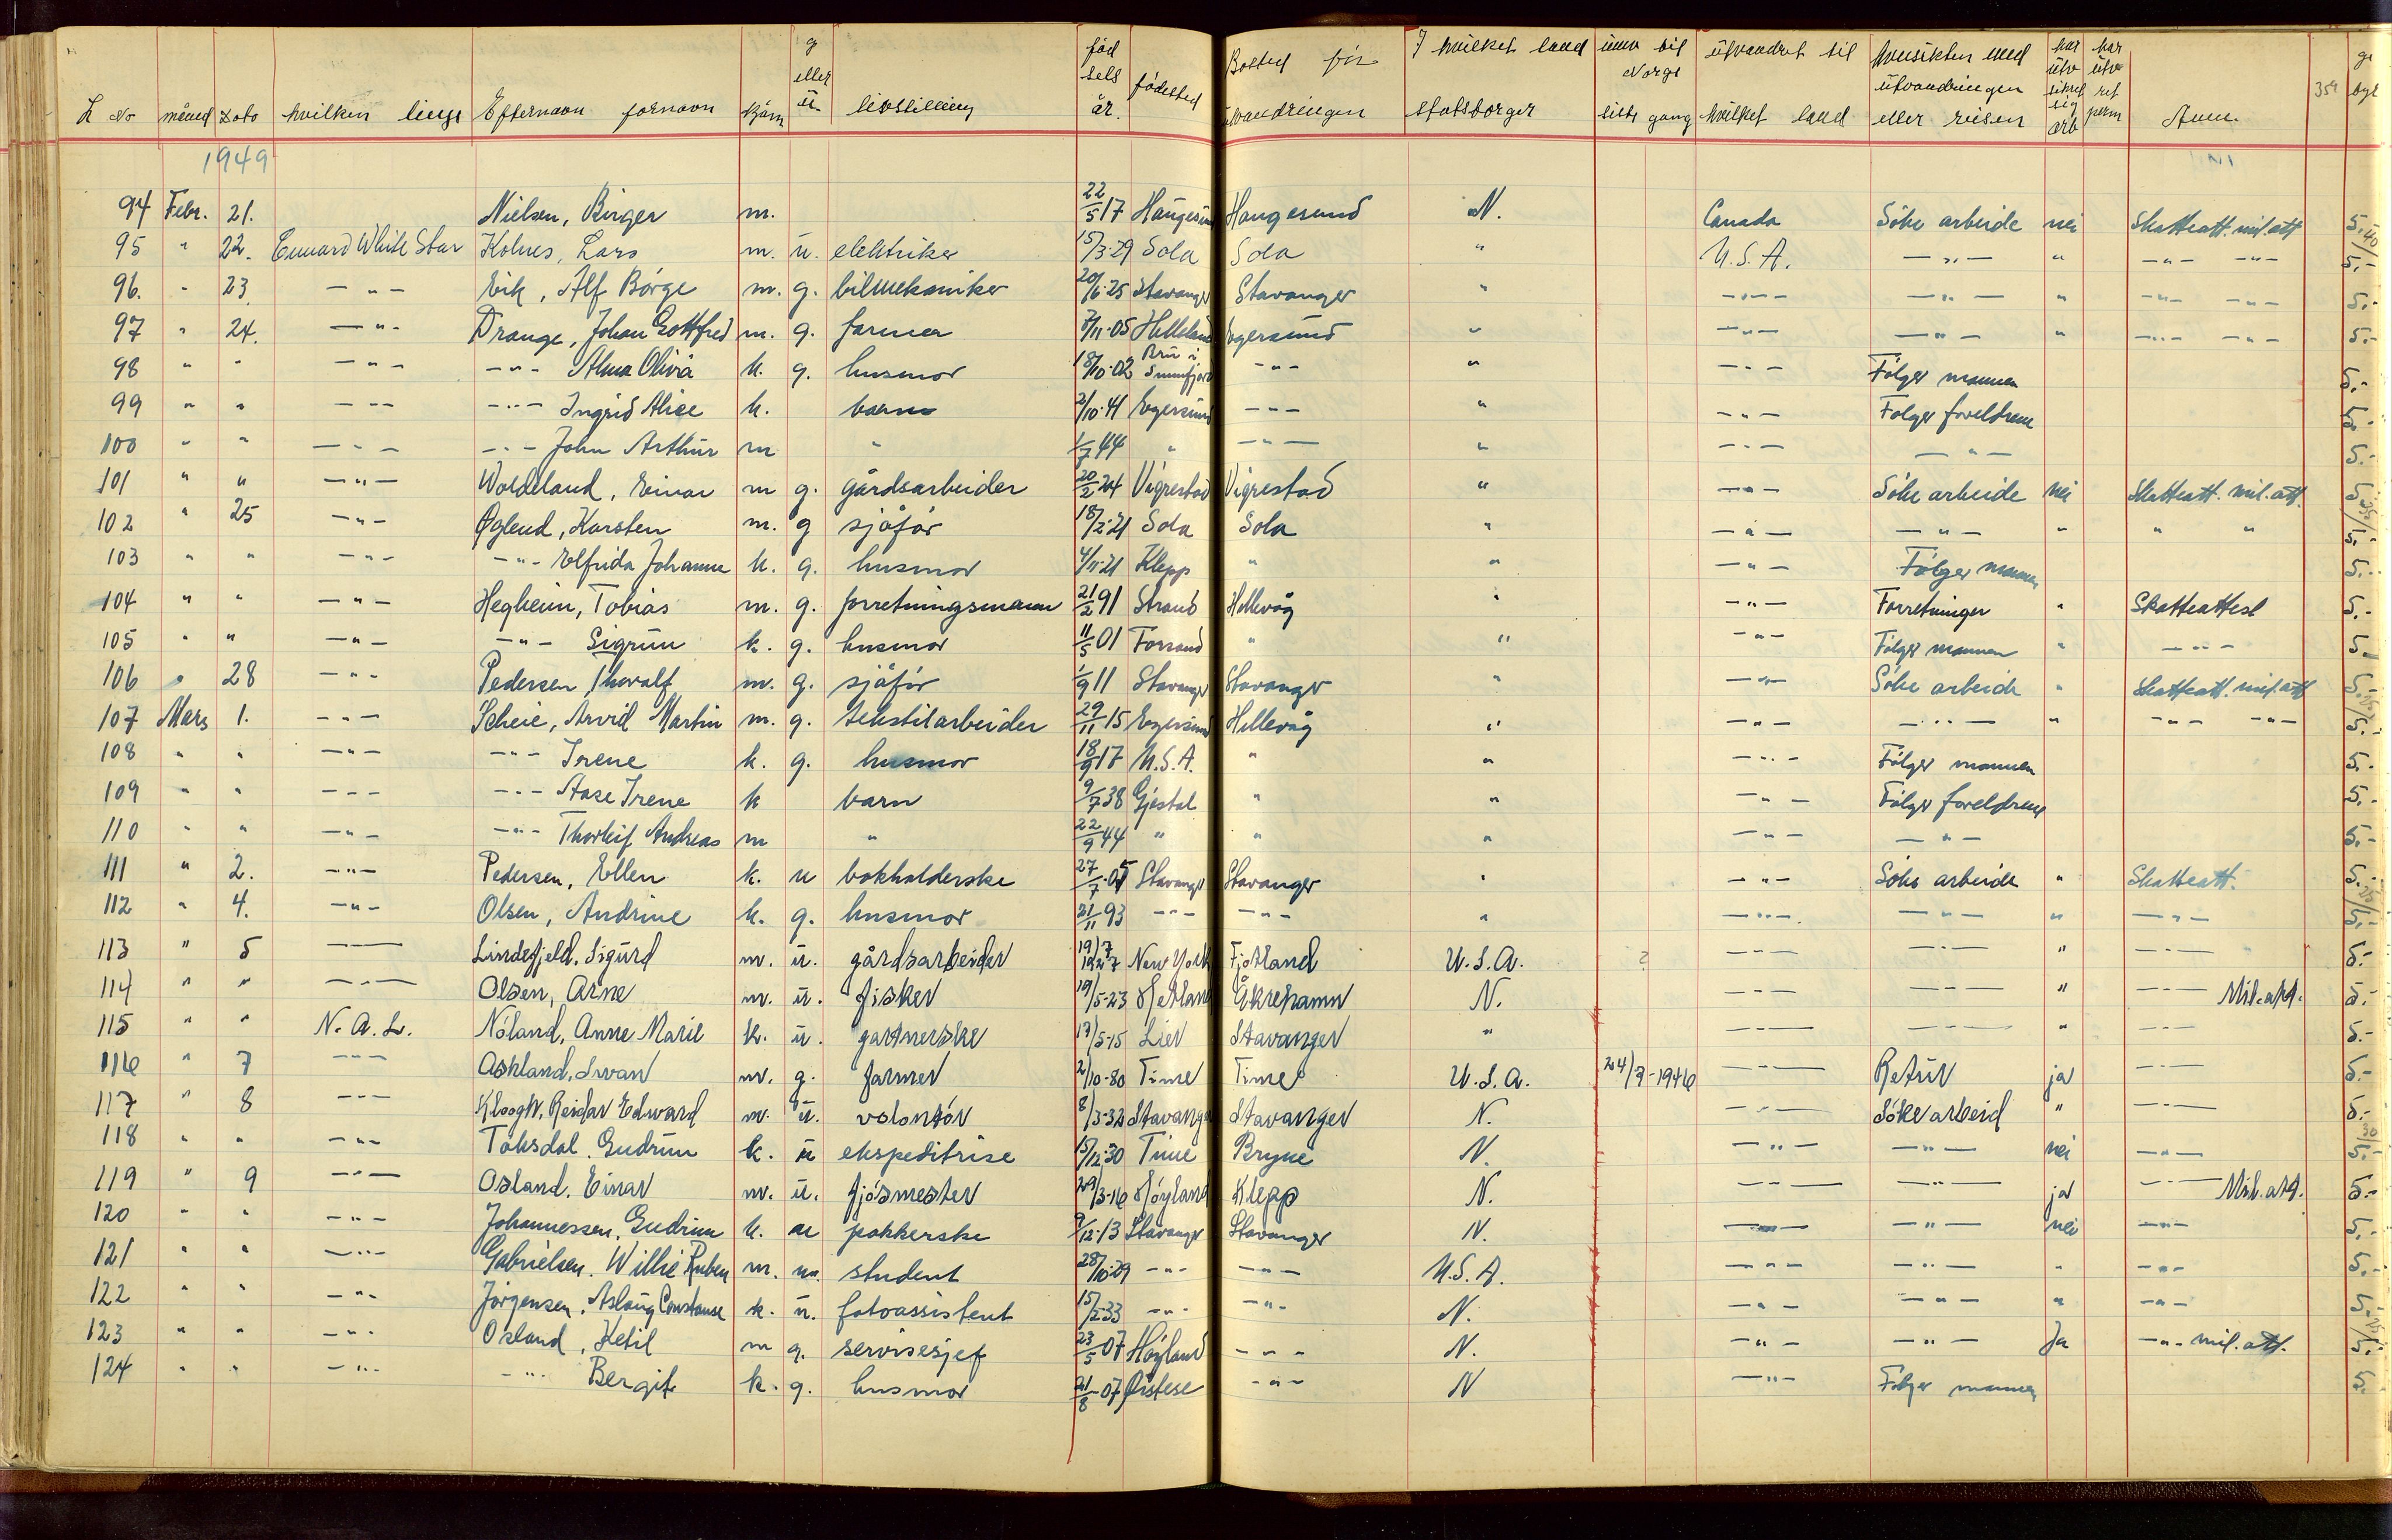 L No måned Dato hvilken linge Efternavn fornavn kjønn g eller ü. livsstilling fød sels år. fødested Bosted før ütvandringen I hvilket land statsborger innv til Norge siste gang ütvandret til hvilket land hensikten med ütvandringen eller reisen har ütv sikret sig arb har ütv ret perm Anm. 354
1949
94 Febr. 21. Nielsen, Birger m. 22/5 17 Haugesund Haugesund N. Canada Söke arbeide nei Skatteatt. mil. att 5,-
95 " 22. Cunard White Star Kolnes, Lars m. ü. elektriker 15/3-29 Sola Sola " U.S.A. -"- " -"- -"- 5,-
96. " 23 -"- Eik, Alf Börge m. g. bilmekaniker 20/6-25 Stavanger Stavanger " -"- -"- " -"- -"- 5.-
97 " 24. -"- Drange, Johan Gottfred m. g. farmer 7/11-05 Helleland Egersund " -"- -"- " -"- -"- 5.-
98 " " -"- -"- Alma Olivia k. g. husmor 18/10-02 Bru i Sunnfjord -"- " -"- Følger mannen 5.-
99 " " -"- -"- Ingrid Alice k. barn 2/10-41 Egersund -"- " -"- Følger foreldrene 5.-
100 " " -"- -"- John Arthur m " 1/7 44 " -"- " -"- -"- 5.-
101 " " -"- Woldeland, Einar m g. gårdsarbeider 20/2-24 Vigrestad Vigrestad " -"- Söke arbeide nei Skatteatt. mil. att. 5
102 " 25 -"- Øglend, Karsten m. g sjåför 18/2-21 Sola Sola " -"- -"- " " " 5.-
103 " " -"- -"- Elfrida Johanne k. g. husmor 4/11-21 Klepp " " -"- Følger mannen 5.-
104 " " -"- Hegheim, Tobias m. g. forretningsmann 21/2 91 Strand Hillevåg " -"- Forretninger " Skatteattest 5.-
105 " " -"- -"- Sigrun k. g. husmor 11/5 01 Forsand " " -"- Følger mannen " -"- 5.-
106 " 28 -"- Pedersen, Thoralf m. g. sjåför 1/9 11 Stavanger Stavanger " -"- Söke arbeide " Skatteatt. mil. att 5.-
107 Mars 1. -"- Scheie, Arvid Martin m. g. tekstilarbeider 29/11 15 Egersund Hillevåg " -"- -"- " -"- -"- 5.-
108 " " -"- -"- Irene k. g. husmor 18/9 17 U.S.A. " " -"- Følger mannen 5.-
109 " " -"- -"- Aase Irene k barn 9/7 38 Gjestal " " -"- Følger foreldrene 5.-
110 " " -"- -"- Thorleif Andreas m " 22/9 44 " " " -"- -"- 5.-
111 " 2. -"- Pedersen, Ellen k. u bokholderske 27/7-05 Stavanger Stavanger " -"- Söke arbeide " Skatteatt. 5.-
112 " 4. -"- Olsen, Andrine k. g. husmor 21/11 93 -"- -"- " -"- -"- " -"- 5,-
113 " 5 -"- Lindefjeld. Sigurd m. ü. gårdsarbeider 19/7 1927 New York Fjotland U.S.A. ? -"- -"- " -"- 5.-
114 " " -"- Olsen, Arne m. ü. fisker 19/5-23 Hetland Åkrehamn N. -"- -"- " -"- Mil. att. 5.-
115 " " N.A.L. Nöland, Anne Marie k. ü. gartnerske 17/5-15 Lier Stavanger " -"- -"- " -"- 5.-
116 " 7 -"- Ashland, Swan m. g. farmer 2/10-80 Time Time U.S.A. 24/7-1946 -"- Retur ja -"- 5.-
117 " 8 -"- Kloogh, Reidar Edward m. ü. volontör 8/3-32 Stavanger Stavanger N. -"- Söke arbeid " -"- 5.-
118 " " -"- Taksdal. Gudrun k. ü ekspeditrise 15/12-30 Time Bryne N. -"- -"- nei -"- 5.-
119 " 9 -"- Osland. Einar m. ü. fjösmester 29/3-16 Höyland Klepp N. -"- -"- ja -"- Mil. att. 5.-
120 " " -"- Johannessen, Gudrun k. u pakkerske 9/12-13 Stavanger Stavanger N. -"- -"- nei -"- 5.-
121 " " -"- Gabrielsen. Willie Ruben m. u. student 28/10-29 -"- -"- U.S.A. -"- -"- " -"- 5.-
122 " " -"- Jørgensen, Aslaug Constanse k. ü. fotoassistent 15/2-33 -"- -"- N. -"- -"- " -"- 5.-
123 " " -"- Osland, Ketil m g. servisesjef 23/5 07 Höyland -"- N. -"- -"- Ja -"- mil. att. 5.-
124 " " -"- -"- Bergit k. g. husmor 21/8-07 Øistese -"- N -"- Følger mannen 5.